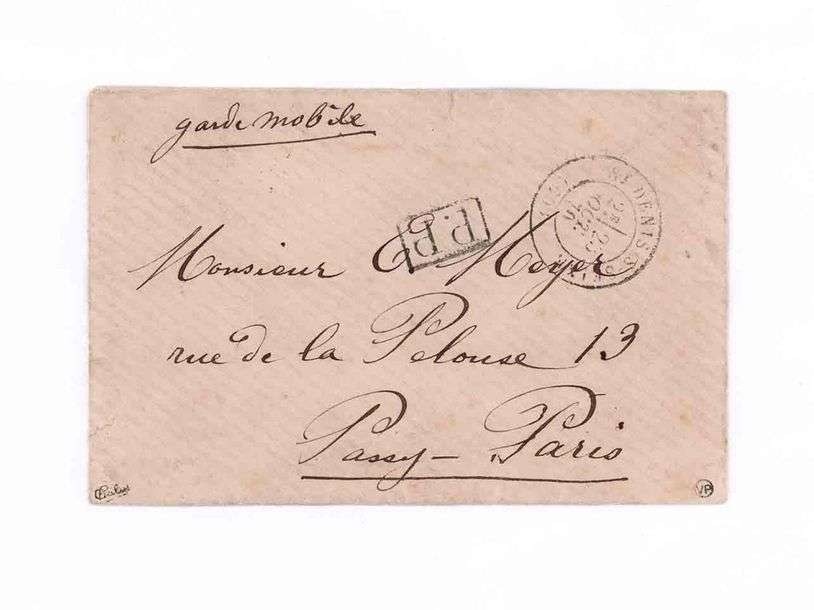 garde mobile
P.P.
ST DENIS S SEINE
Monsieur E Meyer
rue de la Pelouse 13
Passy - Paris
VP